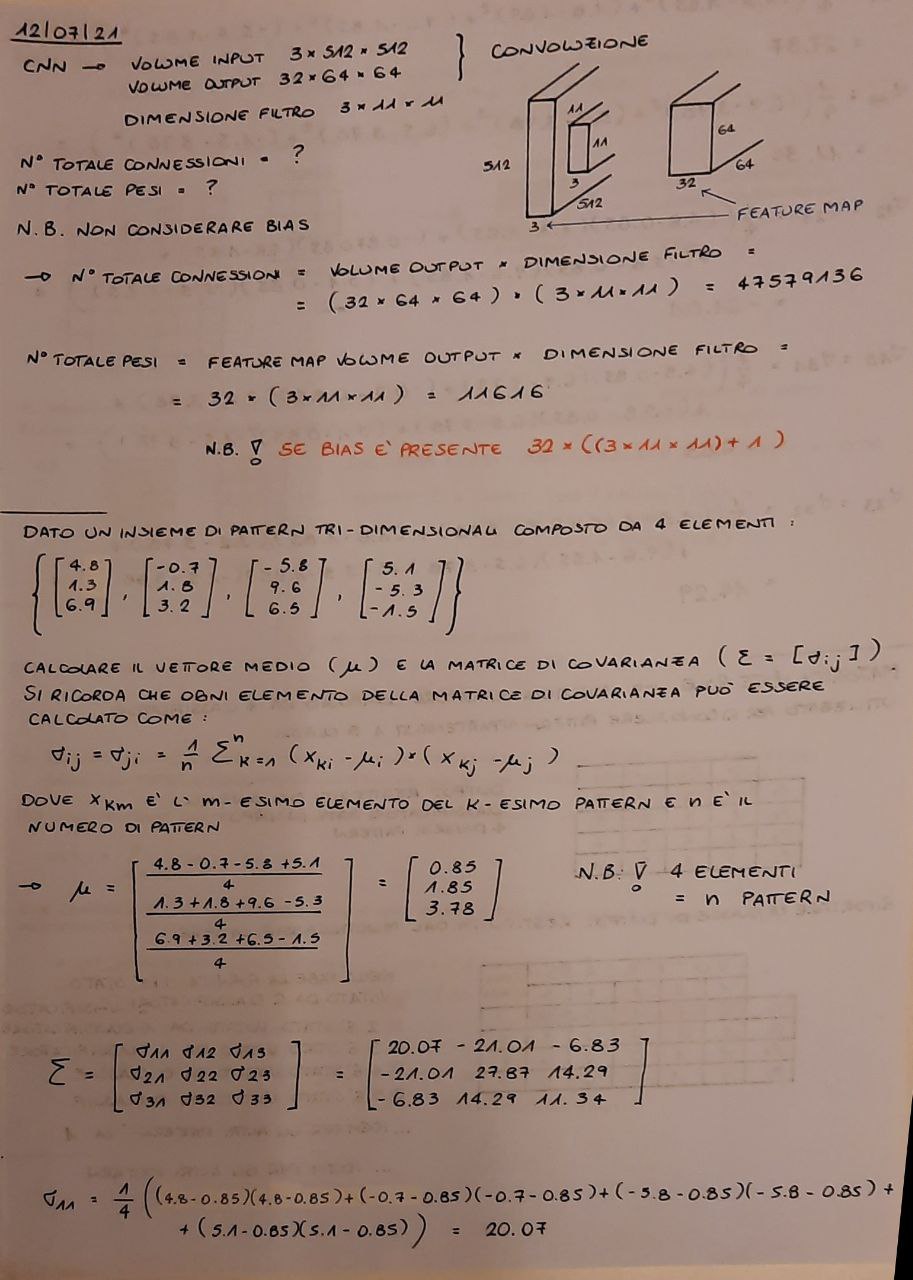 12/07/21
CNN → VOLUME INPUT 3 × 512 × 512
VOLUME OUTPUT 32 × 64 × 64
} CONVOLUZIONE
DIMENSIONE FILTRO 3 × 11 × 11
512
11
11
3
512
3
64
64
32
FEATURE MAP
N° TOTALE CONNESSIONI = ?
N° TOTALE PESI = ?
N.B. NON CONSIDERARE BIAS
→ N° TOTALE CONNESSIONI = VOLUME OUTPUT × DIMENSIONE FILTRO =
= (32 × 64 × 64) × (3 × 11 × 11) = 47579136
N° TOTALE PESI = FEATURE MAP VOLUME OUTPUT × DIMENSIONE FILTRO =
= 32 × (3 × 11 × 11) = 11616
N.B. ! SE BIAS E' PRESENTE 32 × ((3 × 11 × 11) + 1)
DATO UN INSIEME DI PATTERN TRI-DIMENSIONALI COMPOSTO DA 4 ELEMENTI :
{ [4.8 , [-0.7 , [-5.8 , [5.1
1.3 1.8 9.6 -5.3
6.9] 3.2] 6.5] -1.5] }
CALCOLARE IL VETTORE MEDIO (μ) E LA MATRICE DI COVARIANZA (Σ = [σij]).
SI RICORDA CHE OGNI ELEMENTO DELLA MATRICE DI COVARIANZA PUÒ ESSERE
CALCOLATO COME :
σij = σji = 1/n Σ^n_k=1 (xki - μi) × (xkj - μj)
DOVE xkm E' L' m-ESIMO ELEMENTO DEL K-ESIMO PATTERN E n E' IL
NUMERO DI PATTERN
→ μ = [ (4.8 - 0.7 - 5.8 + 5.1)/4 ] = [ 0.85 ]
[ (1.3 + 1.8 + 9.6 - 5.3)/4 ] [ 1.85 ]
[ (6.9 + 3.2 + 6.5 - 1.5)/4 ] [ 3.78 ]
N.B. ! 4 ELEMENTI
= n PATTERN
Σ = [ σ11 σ12 σ13 ] = [ 20.07 -21.01 -6.83 ]
[ σ21 σ22 σ23 ] [ -21.01 27.87 14.29 ]
[ σ31 σ32 σ33 ] [ -6.83 14.29 11.34 ]
σ11 = 1/4 ((4.8-0.85)(4.8-0.85)+(-0.7-0.85)(-0.7-0.85)+(-5.8-0.85)(-5.8-0.85)+
+(5.1-0.85)(5.1-0.85)) = 20.07